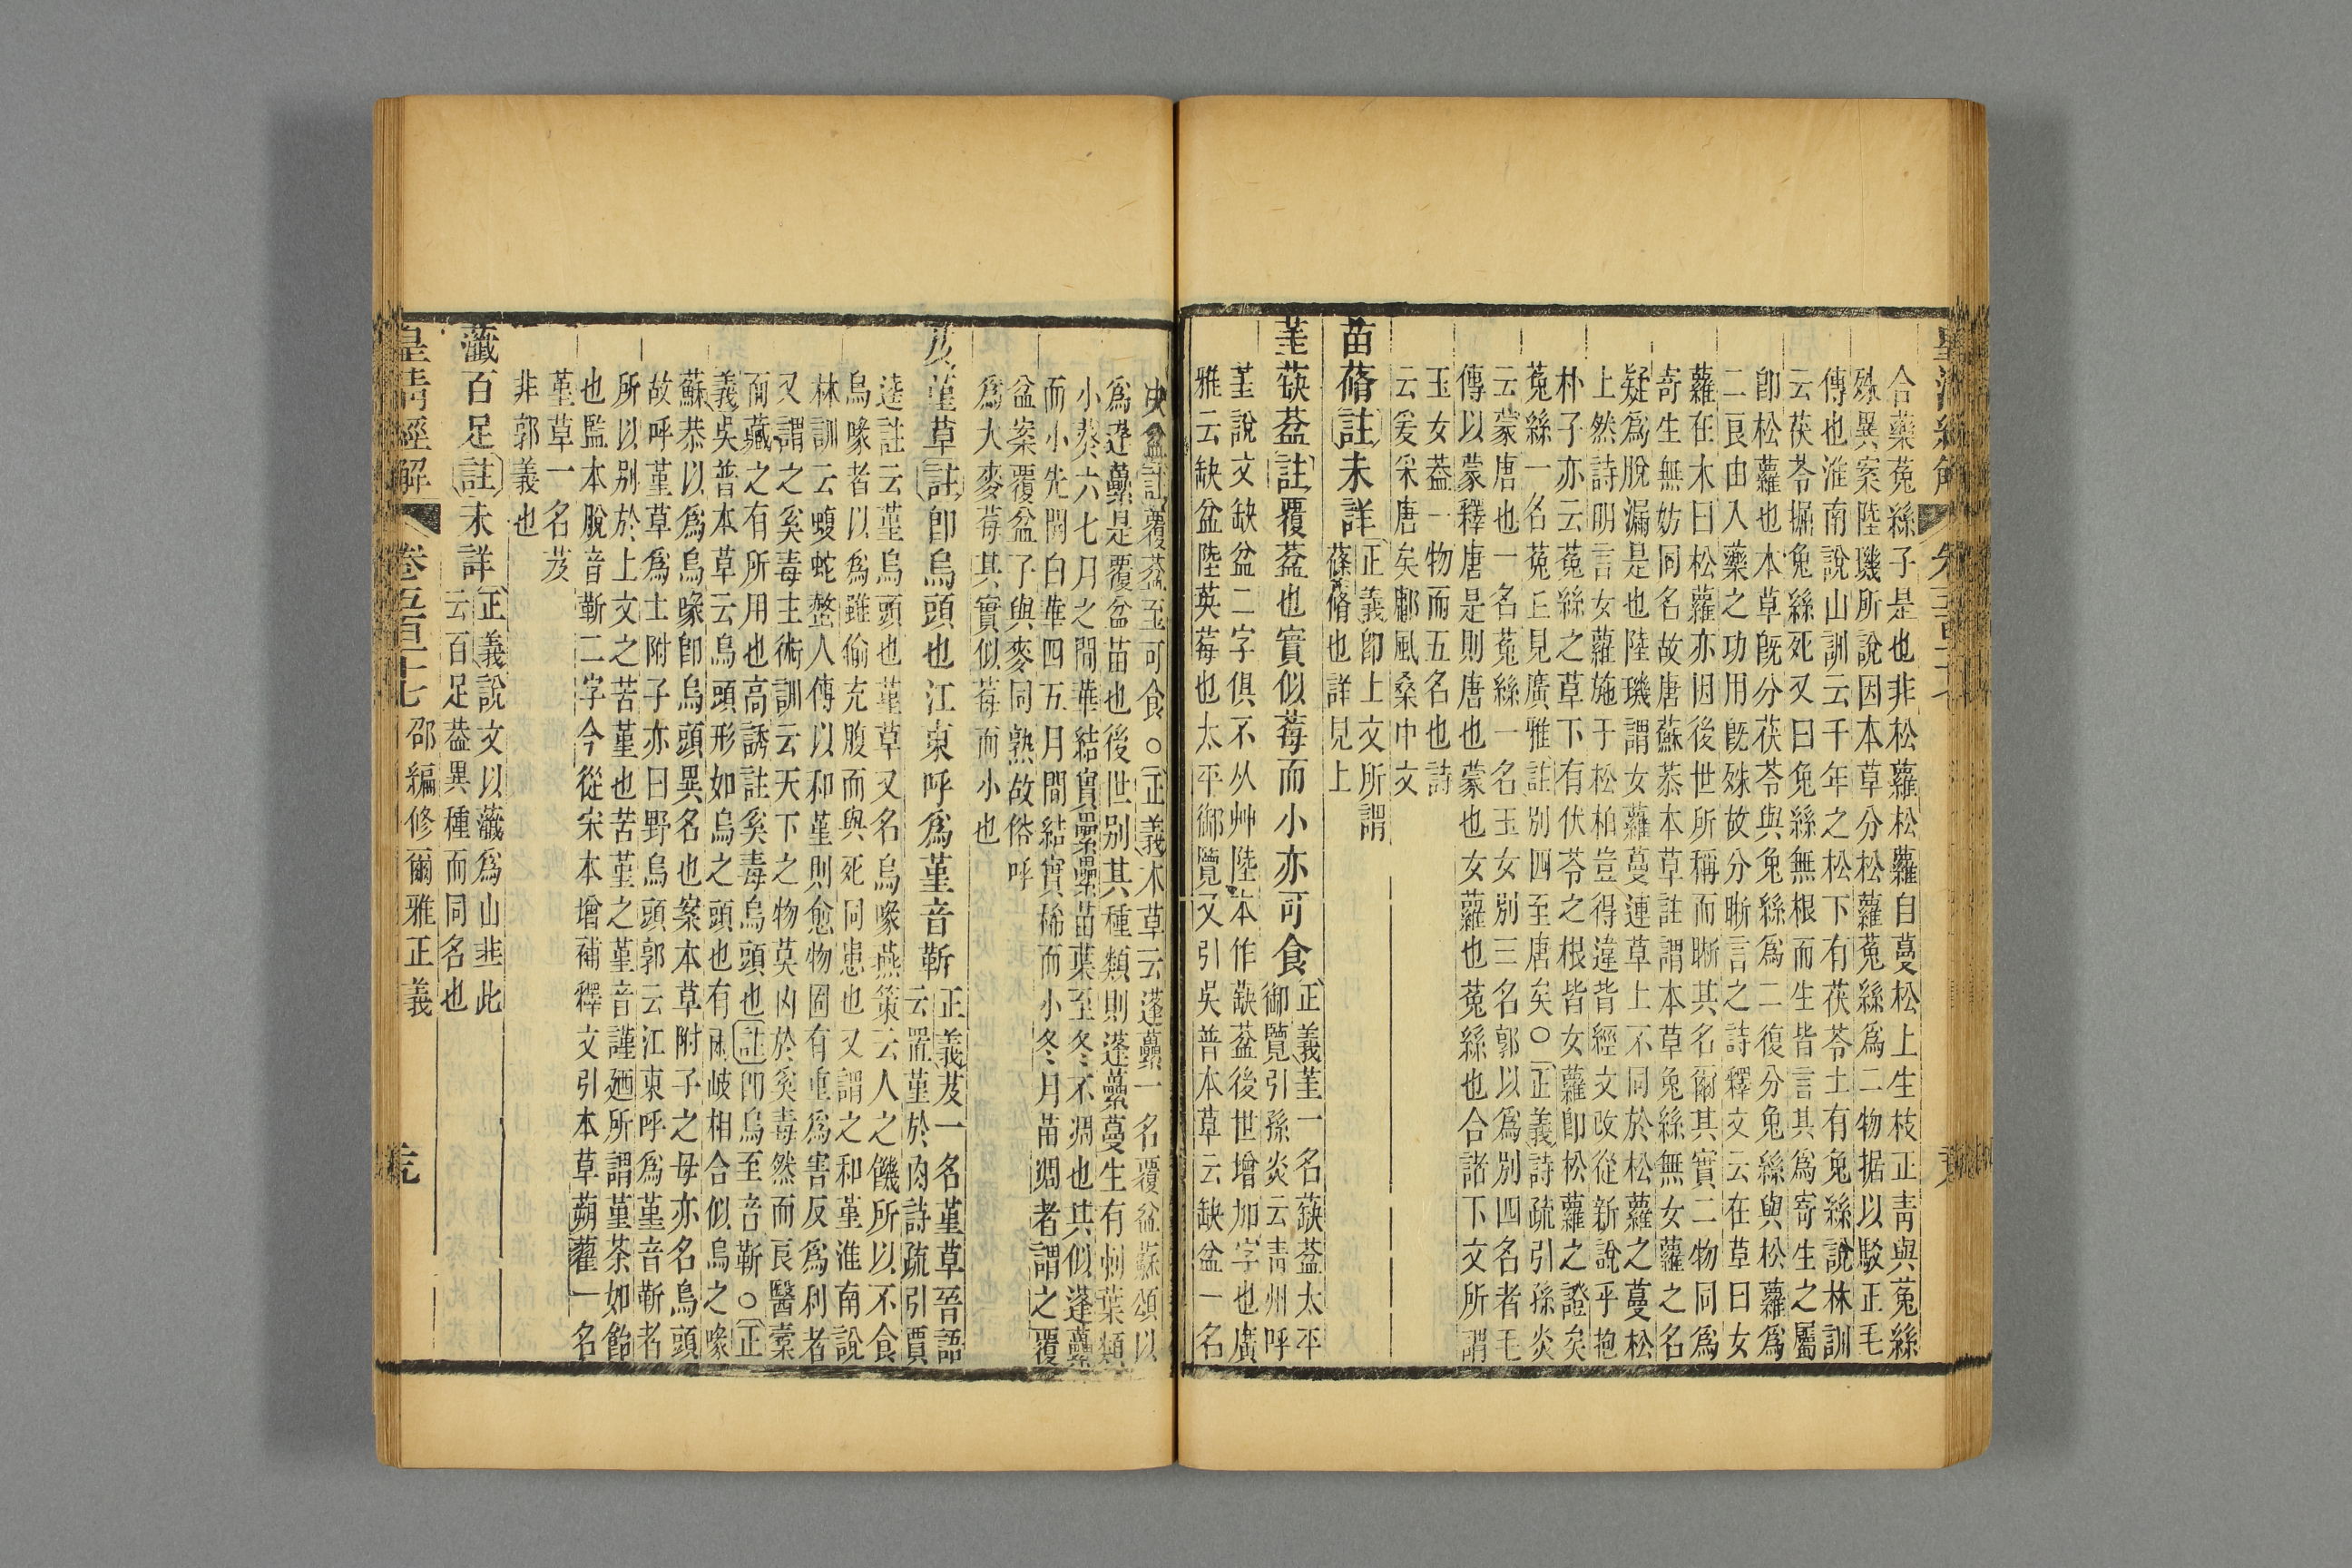 合藥菟絲子是也非松蘿松蘿自蔓松上生枝正靑與菟絲
殊異案陸璣所說因本草分松蘿菟絲爲二物据以駁正毛
傳也淮南說山訓云千年之松下有茯苓上有兔絲說林訓
云茯苓掘兔絲死又曰兔絲無根而生皆言其爲寄生之屬
卽松蘿也本草旣分茯苓與兔絲爲二復分兔絲與松蘿爲
二良由入藥之功用旣殊故分晰言之詩釋文云在草曰女
蘿在木曰松蘿亦因後世所稱而晰其名爾其實二物同爲
寄生無妨同名故唐蘇恭本草註謂本草兔絲無女蘿之名
疑爲脫漏是也陸璣謂女蘿蔓連草上不同於松蘿之蔓松
上然詩明言女蘿施于松柏豈得違背經文改從新說乎抱
朴子亦云菟絲之草下有伏苓之根皆女蘿卽松蘿之證矣
菟絲一名菟丘見廣雅註別四至唐矣○正義詩疏引孫炎
云蒙唐也一名菟絲一名玉女別三名郭以爲別四名者毛
傳以蒙釋唐是則唐也蒙也女蘿也菟絲也合諸下文所謂
玉女蓋一物而五名也詩
云爰采唐矣鄘風桑中文
苗蓨註未詳正義卽上文所謂
蓧蓨也詳見上
茥蒛葐註覆葐也實似莓而小亦可食正義茥一名蒛葐太平
御覽引孫炎云靑州呼
茥說文缺盆二字俱不从艸陸本作蒛葐後世增加字也廣
雅云缺盆陸英莓也太平御覽又引吳普本草云缺盆一名
決盆註覆葐至可食○正義本草云蓬虆一名覆盆蘇頌以
爲蓬虆是覆盆苗也後世别其種類則蓬虆蔓生有刺葉類
小葵六七月之間華結實纍纍苗葉至冬不凋也其似蓬虆
而小先開白華四五月間結實稀而小冬月苗凋者謂之覆
盆案覆盆子與麥同熟故俗呼
爲大麥莓其實似莓而小也
芨堇草註卽烏頭也江東呼爲堇音靳正義芨一名堇草晉語
云置堇於肉詩疏引賈
逵註云堇烏頭也堇草又名烏喙燕策云人之饑所以不食
烏喙者以爲雖偷充腹而與死同患也又謂之和堇淮南說
林訓云蝮蛇螫人傅以和堇則愈物固有重爲害反爲利者
又謂之奚毒主術訓云天下之物莫凶於奚毒然而良醫橐
而藏之有所用也高誘註奚毒烏頭也註卽烏至音靳○正
義吳普本草云烏頭形如烏之頭也有兩歧相合似烏之喙
蘇恭以爲烏喙卽烏頭異名也案本草附子之母亦名烏頭
故呼堇草爲土附子亦曰野烏頭郭云江東呼爲堇音靳者
所以别於上文之苦堇也苦堇之堇音謹廼所謂堇荼如飴
也監本脫音靳二字今從宋本增補釋文引本草蒴藋一名
堇草一名芨
非郭義也
虃百足註未詳正義說文以虃爲山韭此
云百足葢異種而同名也
皇淸經解 卷五百十七 邵編修爾雅正義